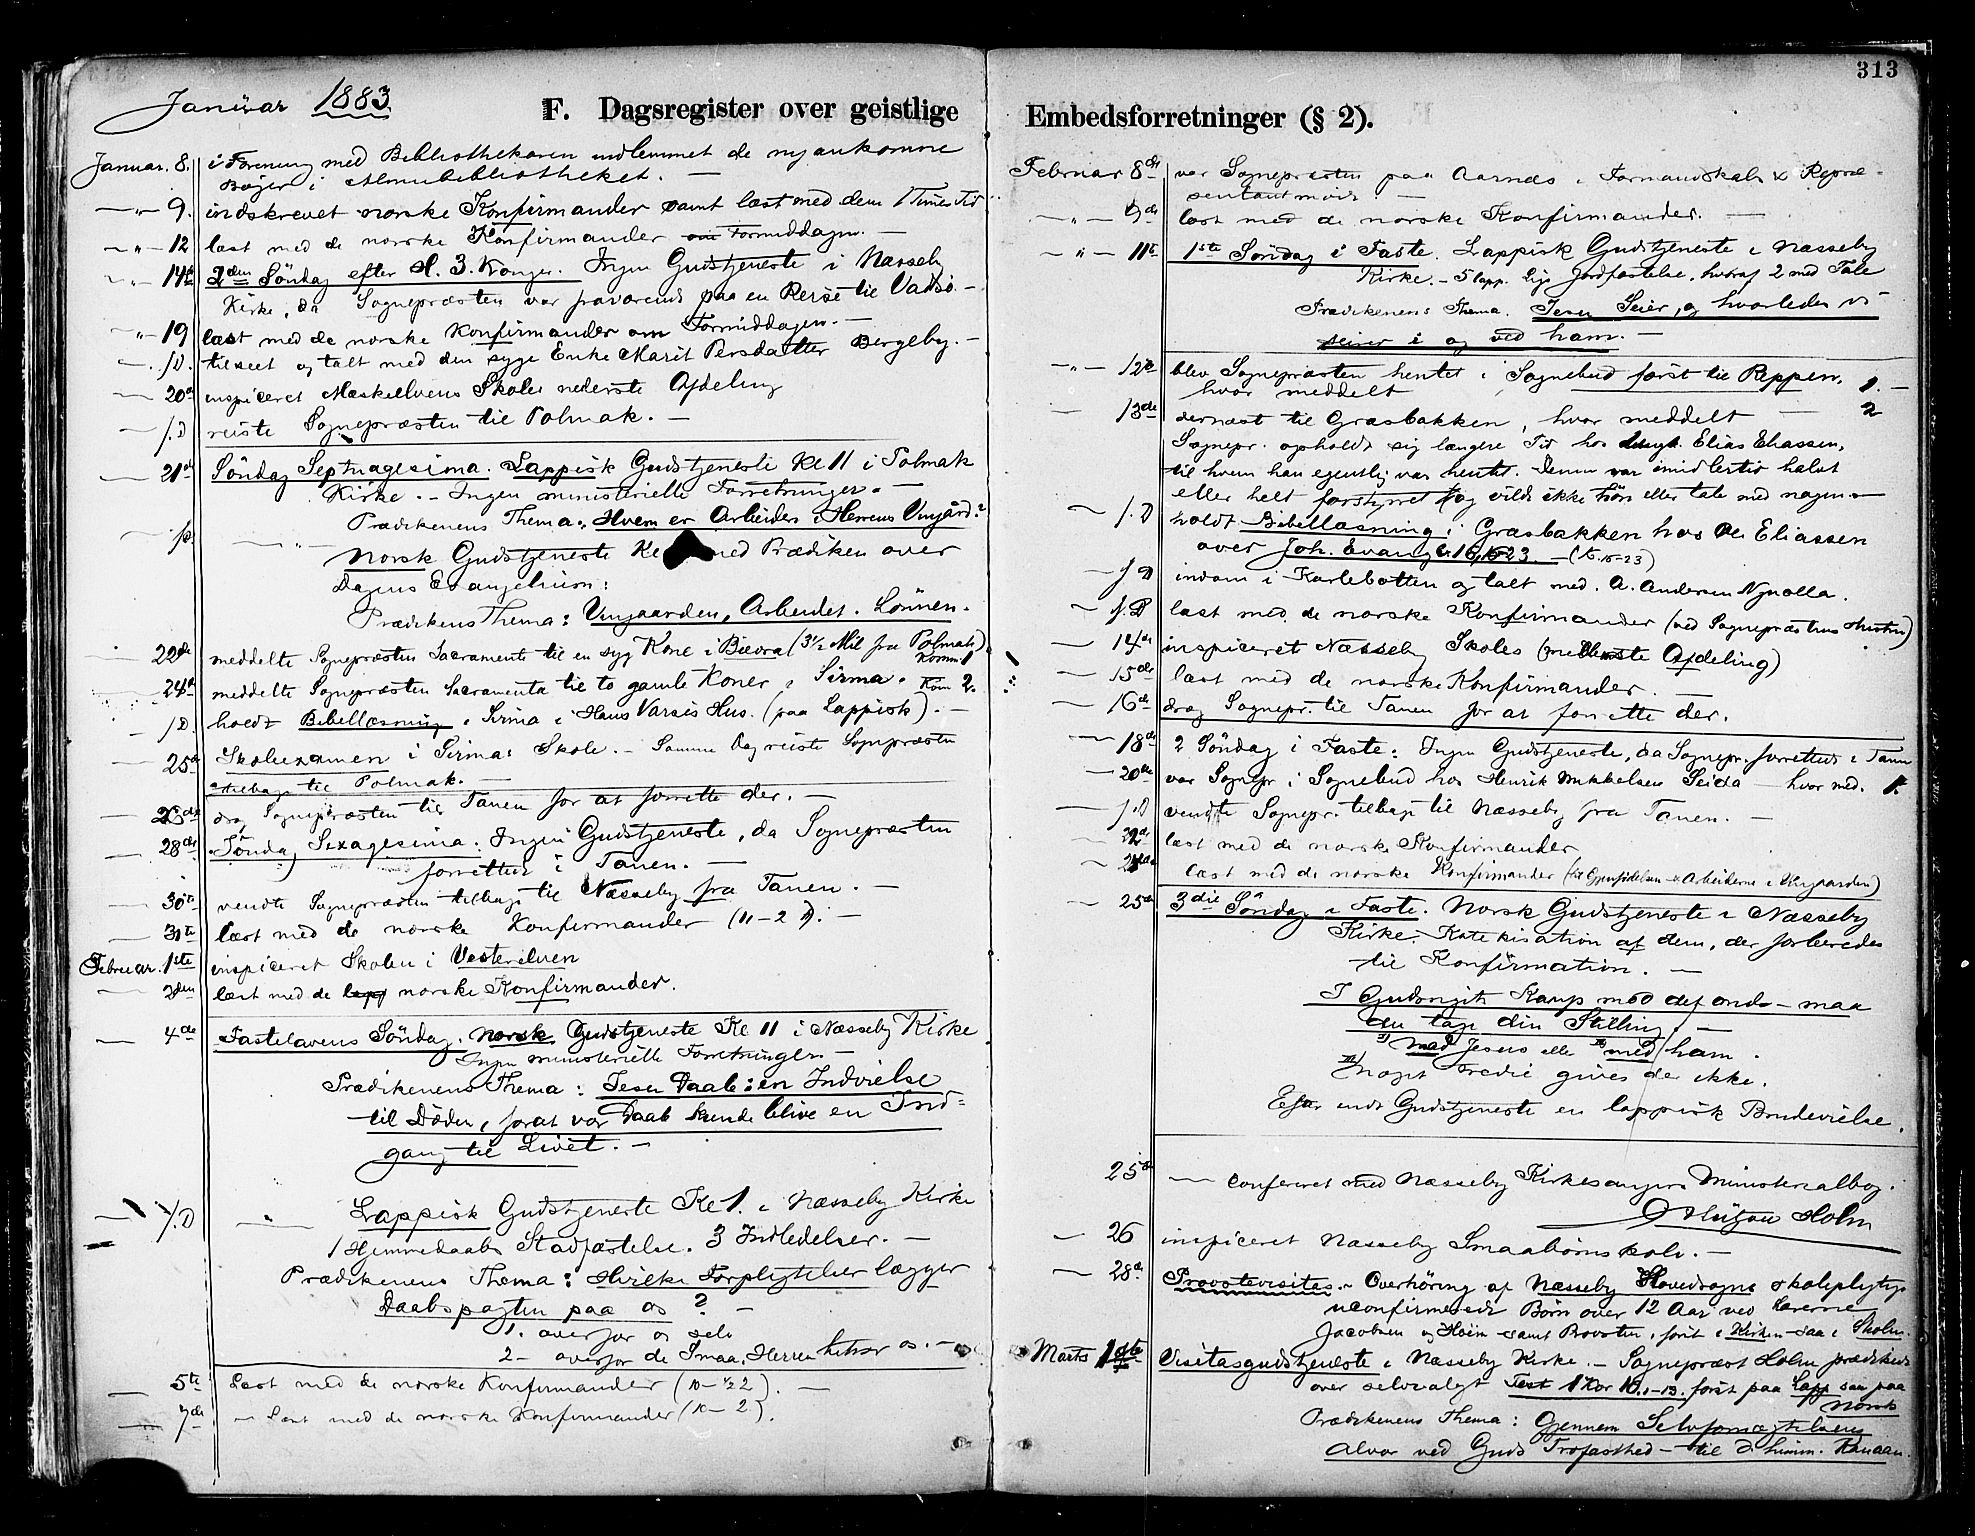 Januar 1883.
F. Dagsregister over geistlige
Januar. 8. i Forening med Bibliothekaren indlemmet de nyankomne
Bøger i Almubibliotheket. —
— " — 9. indskrevet norske Konfirmander samt læst med dem 1 Times Tid
— " — 12 læst med de norske Konfirmander om Formiddagen. —
— " — 14de 2den Söndag efter H. 3. Konger. Ingen Gudstjeneste i Næsseby
Kirke, da Sognepræsten var fraværende paa en Reise til Vadsö. —
— " — 19 læst med de norske Konfirmander om Formiddagen. —
— f.D. tilseet og talt med den syge Enke Marit Persdatter Bergeby. —
— 20de inspiceret Mæskelvens Skoles nederste Afdeling
— f.D reiste Sognepræsten til Polmak. —
— 21de Söndag Septuagesima. Lappisk Gudstjeneste Kl 11 i Polmak
Kirke. — Ingen ministerielle Forretninger. —
Prædikenens Thema: Hvem er Arbeider i Herrens Vingård?
— f.D. — " — Norsk Gudstjeneste Kl med Prædiken over
Dagens Evangelium:
Prædikens Thema: Vingaarden, Arbeidet. Lönnen.
— 22de meddelte Sognepræsten Sacramente til en syg Kone i Bievra (3 1/2 Mil fra Polmak)
Komm 1
— 24de meddelte Sognepræsten Sacramenta til to gamle Koner i Sirma. Kom 2.
— f.D. holdt Bibellæsning i Sirma i Hans Varsis Hus. (paa Lappisk). —
— 25de Skoleexamen i Sirma: Skole. — Samme Dag reiste Sognepræsten
tilbage til Polmak. —
— 26de drog Sognepræsten til Tanen for at forrette der. —
— 28de Söndag Sexagesima. Ingen Gudstjeneste, da Sognepræsten
forrettede i Tanen. —
— 30te vendte Sognepræsten tilbage til Næsseby fra Tanen. —
— 31te læst med de norske Konfirmander (11–2). —
Februar. 1ste inspiceret Skolen i Vesterelven
— 2den læst med de lapp norske Konfirmander.
— 4de Fastelavens Söndag. Norsk Gudstjeneste Kl 11 i Næsseby Kirke
Ingen ministerielle Forretninger. —
Prædikenens Thema: Jesu Daab: en Indvielse
til Döden, forat vor Daab kunde blive en Ind=
gang til Livet. —
— f.D — Lappisk Gudstjeneste Kl 1. i Næsseby Kirke
1 Hjemmedaabs Stadfæstelse. 3 Indledelser. —
Prædikenens Thema: Hvilke Forpligtelser lægger
Daabspagten paa os? —
1. overfor os selv
2— overfor de Smaa, Herren betror os. —
— 5te Læst med de norske Konfirmander (10– 1/2 2). —
— 7de — Læst med de norske Konfirmander (10–2).
313
Embedsforretninger (§ 2).
Februar 8de var Sognepræsten paa Aarnæs i Formandskabs & Repræ-
sentantmöde. —
— " — 9de læst med de norske Konfirmander. —
— " — 11te 1ste Söndag i Faste. Lappisk Gudstjeneste i Næsseby
Kirke. — 5 lapp. Lige Jordfæstelse, hvoraf 2 med Tale
Prædikenens Thema. Jesu Seier, og hvorledes vi
seirer i og ved ham. —
— " — 12te blev Sognepræsten hentet i Sognebud först til Reppen, 1. —
hvor meddelt
— 13de dernæst til Græsbakken, hvor meddelt — 2
Sognepr. opholdt sig længere Tid hos Elias Eliassen,
til hvem han egentlig var hentet. Denne var imidlertid halvt
eller helt forstyrret og vilde ikke höre eller tale med nogen —
— f.D holdt Bibellæsning i Græsbakken hos Eliassen
over Joh. Evang. 16, 15-23. — (15-23)
— f D indom i Karlebotten og talt med. A. Andersen Nynolla.
— f.D læst med de norske Konfirmander (ved Sognepræstens Hustru)
— 14de inspiceret Næsseby Skoles (mellemste Afdeling)
— 15de læst med de norske Konfirmander. —
— 16de drog Sognepr. til Tanen for at forrette der.
— 18de 2 Söndag i Faste: Ingen Gudstjeneste, da Sognepr. forrettede i Tanen
— 20de var Sognepr i Sognebud hos Henrik Mikkelsen Seida — hvor med. 1.
— f.D vendte Sognepr. tilbage til Næsseby fra Tanen. —
22de læst med de norske Konfirmander
— læst med de norske Konfirmander (til Gjenfödelsen & Arbeiderne i Vingaarden)
— 25de 3die Söndag i Faste. Norsk Gudstjeneste i Næsseby
Kirke. Katekisation af dem, der forberedes
til Konfirmation. —
I Gudsrigets Kamp mod det onde — maa
du tage din Stilling. —
I) mod Jesus eller II) med ham.
III) noget Tredie gives der ikke.
Efter endt Gudstjeneste en lappisk Brudevielse.
25de — Confereret med Næsseby Kirkesangers Ministerialbog.
Holm
— 26 inspiceret Næsseby Smaabörnsskole. —
— 28de Provstevisitas. — Overhöring af Næsseby Hovedsogns skolepligtige
uconfirmerede Börn over 12 Aar ved Lærerne
Jacobsen og samt Provsten, först i Kirken — saa i Skolen.
Marts 1ste Visitasgudstjeneste i Næsseby Kirke. — Sognepræst Holm prædikede
over selvvalgt Text 1 Kor 10. 1-13. först paa Lapp saa paa
Norsk
Prædikenens Thema: Gjennem Selvfornægtelsens
Alvor ved Guds Trofasthed — til d. himm. Kanaan.